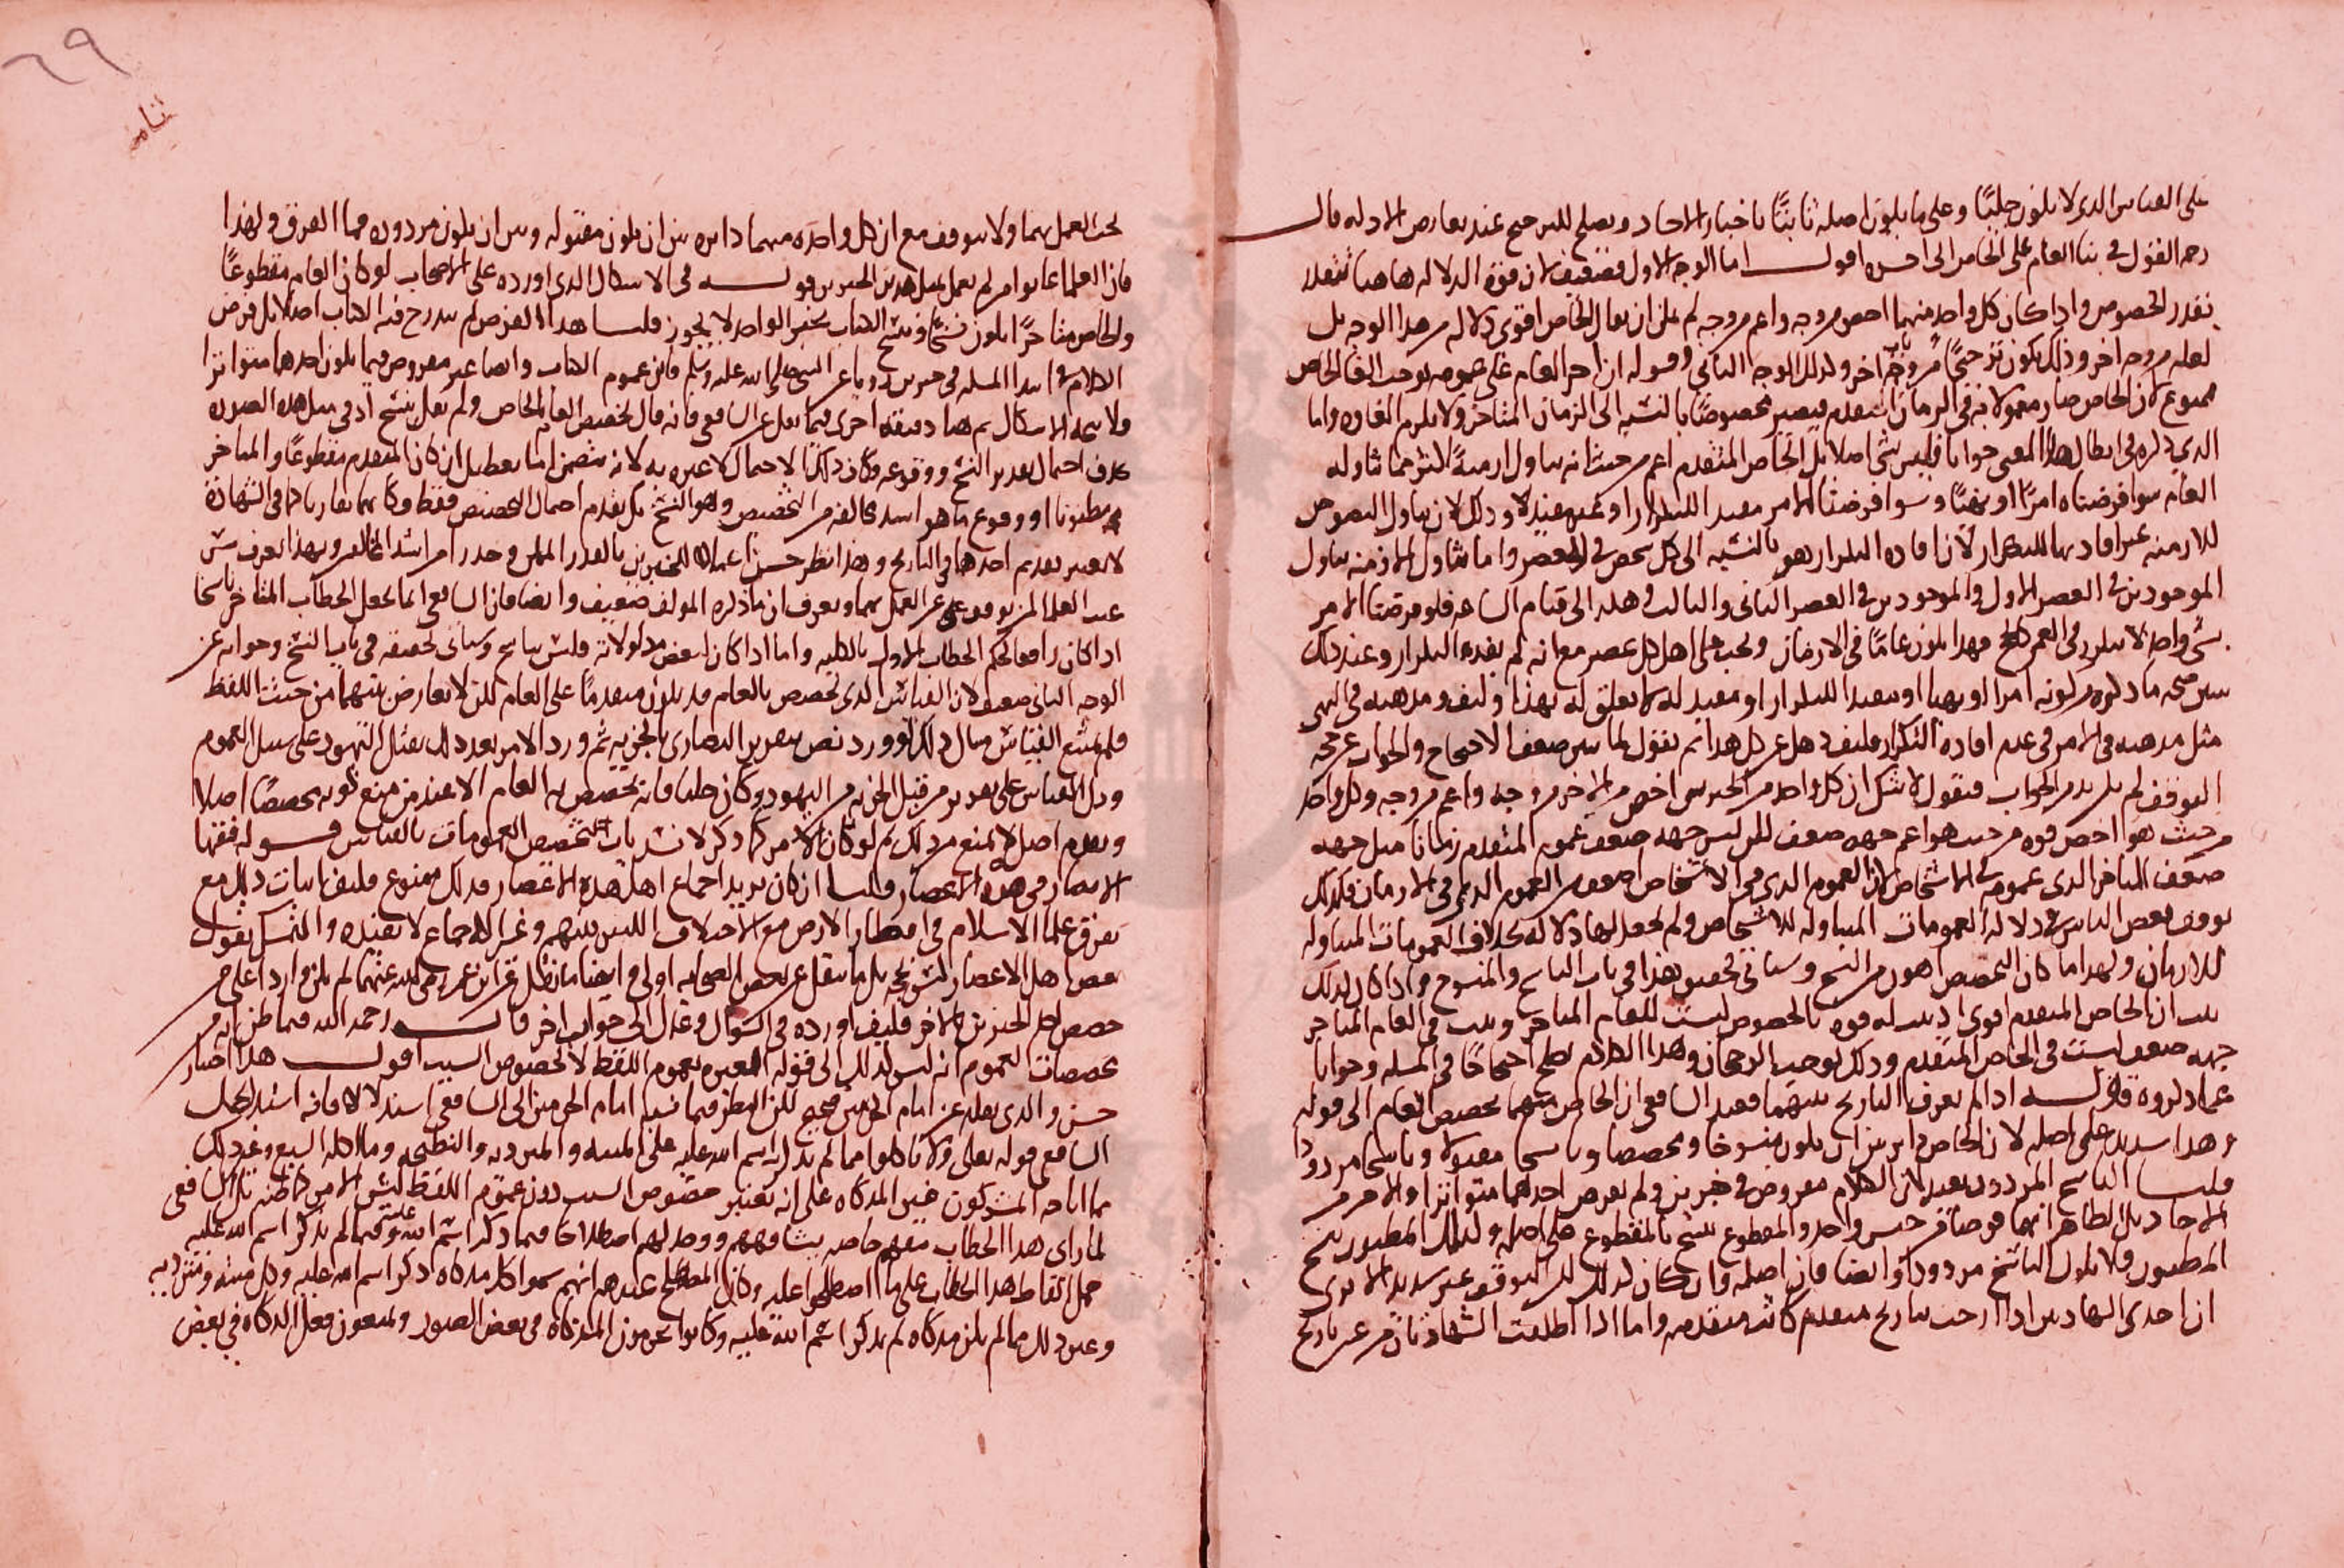 على القياس الذي لا يكون جليًا وعلى ما يكون اصله ثابتًا باخبار الاحاد ويصلح للترجيح عند تعارض الادلة قال
رحمه القول في بنا العام على الخاص الى اخره اقول اما الوجه الاول فضعيف لان قوة الدلالة هاهنا تتقدر
بقدر الخصوص واذا كان كل واحد منهما اخص من وجه واعم من وجه لم يلزم ان يقال الخاص اقوى دلالة من هذا الوجه بل
لعله من وجه اخر وذلك يكون ترجيحًا من وجه اخر وكذلك الوجه الثاني وقوله ان اجرا العام على عمومه يوجب الغا الخاص
ممنوع لان الخاص صار معمولا به في الزمان المتقدم فيصير مخصوصًا بالنسبة الى الزمان المتاخر ولا يلزم الغاوه واما
الذي ذكره في ابطال هذا المعنى جوابا فليس بشي اصلا بل الخاص المتقدم اعم من حيث انه يتناول ازمنةً اكثر مما تناوله
العام سوا فرضناه امرًا او نهيًا وسوا فرضنا الامر مفيدا للتكرار او غير مفيد له وذلك لان تناول النصوص
للازمنة غير افادتها للتكرار لان افادة التكرار هو بالنسبة الى كل شخص في العصر واما تناول الازمنة يتناول
الموجودين في العصر الاول والموجودين في العصر الثاني والثالث وهلم الى قيام الساعة فلو فرضنا الامر
بشي واحد لا يتكرر في العمر كالحج فهذا يكون عامًا في الازمان ويجب على اهل كل عصر مع انه لم يفد التكرار وعند ذلك
تبين صحة ما ذكره من كونه امرا او نهيا او مفيدا للتكرار او مفيد له لا تعلق له بهذا وكيف ومذهبه في النهي
مثل مذهبه في الامر في عدم افادة التكرار فكيف ذهل عن كل هذا ثم نقول لما تبين ضعف الاحتجاج والجواب عن حجة
التوقف لم يكن بد من الجواب فنقول لا شك ان كل واحد من الخبرين اخص من الاخر من وجه واعم من وجه ولكل واحد
من حيث هو اخص قوة من حيث هو اعم جهة ضعف لكن ليس جهة ضعف عموم المتقدم زمانا مثل جهة
ضعف المتاخر الذي عمومه في الاشخاص لان العموم الذي في الاشخاص اضعف من العموم الذي في الازمان فلذلك
توقف بعض الناس في دلالة العمومات المتناولة للاشخاص ولم يجعل لها دلالة بخلاف العمومات المتناولة
للازمان ولهذا ما كان التخصيص اهون من النسخ وسياتي تحقيق هذا في باب الناسخ والمنسوخ واذا كان كذلك
ثبت ان الخاص المتقدم اقوى اذ ثبت له قوة بالخصوص ليست للعام المتاخر وثبت في العام المتاخر
جهة ضعف ليست في الخاص المتقدم وذلك يوجب الرجحان وهذا الكلام يصلح احتجاجًا في المسلة وجوابا
عما ذكروه قال اذا لم يعرف التاريخ بينهما فعند الشافعي ان الخاص منهما يخصص العام الى قوله
وهذا سديد على اصله لان الخاص داير بين ان يكون منسوخا ومخصصا وناسخا مقبولا وناسخا مردودا
قلنا الناسخ المردود بعيد لان الكلام مفروض في خبرين ولم يفرض احدهما متواترا والاخر من
الاحاد بل الظاهر انهما فرضا من جنس واحد والمقطوع ينسخ بالمقطوع على اصله وكذلك المظنون ينسخ
المظنون فلا يكون الناسخ مردودًا وايضا فان اصله وان كان كذلك لكن التوقف غير سديد الا ترى
ان احدى الشهادتين اذا ارخت بتاريخ متقدم كانت متقدمه واما اذا اطلقت الشهادتان من غير تاريخ
٦٩
ثامن
يجب العمل بهما ولا يتوقف مع ان كل واحدة منهما دايرة بين ان يكون مقبوله وبين ان يكون مردودة فما الفرق ولهذا
فان العلما عابوا من لم يعمل بمثل هذين الخبرين قوله في الاشكال الذي اورده على الاصحاب لو كان العام مقطوعًا
والخاص متاخرًا يكون نسخًا ونسخ الكتاب بخبر الواحد لا يجوز قلنا هذا الفرض لم يندرج فيه الكتاب اصلا بل فرض
الكلام في ابتدا المسلة في خبرين رويا عن النبي صلى الله عليه وسلم فاين عموم الكتاب وايضا غير مفروض فيما يكون احدهما متواترا
فلا يتجه الاشكال ثم هنا دقيقه اخرى فيما نقل عن الشافعي فانه قال يخصص العام بالخاص ولم يقل ينسخ اذ في مثل هذه الصورة
عرف احتمال تقدير النسخ ووقوعه وكان ذلك لا احتمال لا عبرة به لانه يتضمن اما تعطيل ان كان المتقدم مقطوعًا والمتاخر
مظنونا او وقوع ما هو اشد مخالفه من التخصيص وهو النسخ بل يقدم احتمال التخصيص فقط وكانهما تقاربا كما في الشهادة
لا يعتبر تقديم احدهما في التاريخ وهذا نظر حسن اعمالا للخبرين بالقدر الممكن وحذر امر اشد المخالفه وبهذا تعرف
عند العلما لمن توقف عن العمل بهما وتعرف ان ما ذكره المولف ضعيف وايضا فان الشافعي انما يجعل الخطاب المتاخر ناسخا
اذا كان رافعا لحكم الخطاب الاول بالكليه واما اذا كان لبعض مدلولاته فليس بناسخ وسياتي تحقيقه في باب النسخ وجوابه عن
الوجه الثاني ضعيف لان القياس الذي يخصص بالعام قد يكون متقدمًا على العام لكن لا تعارض بينهما من حيث اللفظ
فلم يمتنع القياس مثال ذلك لو ورد نص بتقرير النصارى بالجزيه ثم ورد الامر بعد ذلك بقتل اليهود على سبيل العموم
ودل القياس على تقرير من قبل الجزية من اليهود وكان جليا فانه يخصص به العام الا عند من منع كونه مخصصًا اصلا
وتقدم اصله لا يمنع من ذلك ثم لو كان الامر كما ذكر لانسد باب تخصيص العمومات بالقياس قوله فقها
الامصار في هذه الاعصار قلنا ان كان يريد اجماع اهل هذه الاعصار فذلك ممنوع فكيف اثبات ذلك مع
تفرق علما الاسلام في اقطار الارض مع الاختلاف البين بينهم وغير الاجماع لا يفيده والتمسك بقول
بعض اهل الاعصار ليس بحجة بل ما ينقل عن بعض الصحابة اولى وايضا ما نقل عن ابن عمر رضي الله عنهما لم يكن واردا على من
خصص احد الخبرين بالاخر فكيف اورده في السوال وعدل الى جواب اخر قال رحمه الله فيما ظن انه من
مخصصات العموم انه ليس كذلك الى قوله العبرة بعموم اللفظ لا لخصوص السبب اقول هذا اختيار
حسن والذي نقله عن امام الحرمين صحيح لكن النظر فيما نسبه امام الحرمين الى الشافعي استدلالا فانه استدل بحمل
الشافعي قوله تعالى ولا تاكلوا مما لم يذكر اسم الله عليه على الميتة والمتردية والنطيحه وما اكل السبع وغير ذلك
مما اباحه المشركون غير المذكاه على انه يعتبر خصوص السبب دون عموم اللفظ ليس الامر كما ظنه بل الشافعي
لما راى هذا الخطاب معهم خاصه بشافههم ووجد لهم اصطلاحا فيما ذكر اسم الله عليه وفيما لم يذكر اسم الله عليه
حمل الفاظ هذا الخطاب على ما اصطلحوا عليه وكان المصطلح عندهم انهم سموا كل مذكاه ذكر اسم الله عليه وكل ميته ومتردية
وغير ذلك مما لم يكن مذكاه لم يذكر اسم الله عليه وكانوا يحرمون المذكاة في بعض الصور ويمنعون فعل الذكاه في بعض